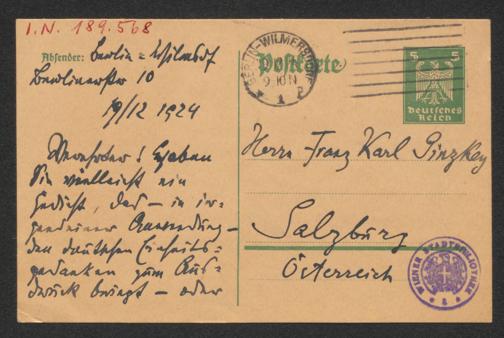 I. N. 189.568
Absender: Berlin = Wilmersdf
Berlinerstr 10
19/12 1924
Verehrter! Haben
Sie vielleicht ein
Gedicht, das – in ir-
gendeiner Anwendung –
den deutschen Einheits-
gedanken zum Aus-
druck bringt – oder
Postkarte
BERLIN-WILMERSDORF
9-10 N
* 1 *
5 5
Deutsches
Reich
Herrn Franz Karl Ginzkey
Salzburg
Österreich
WIENER STADTBIBLIOTHEK